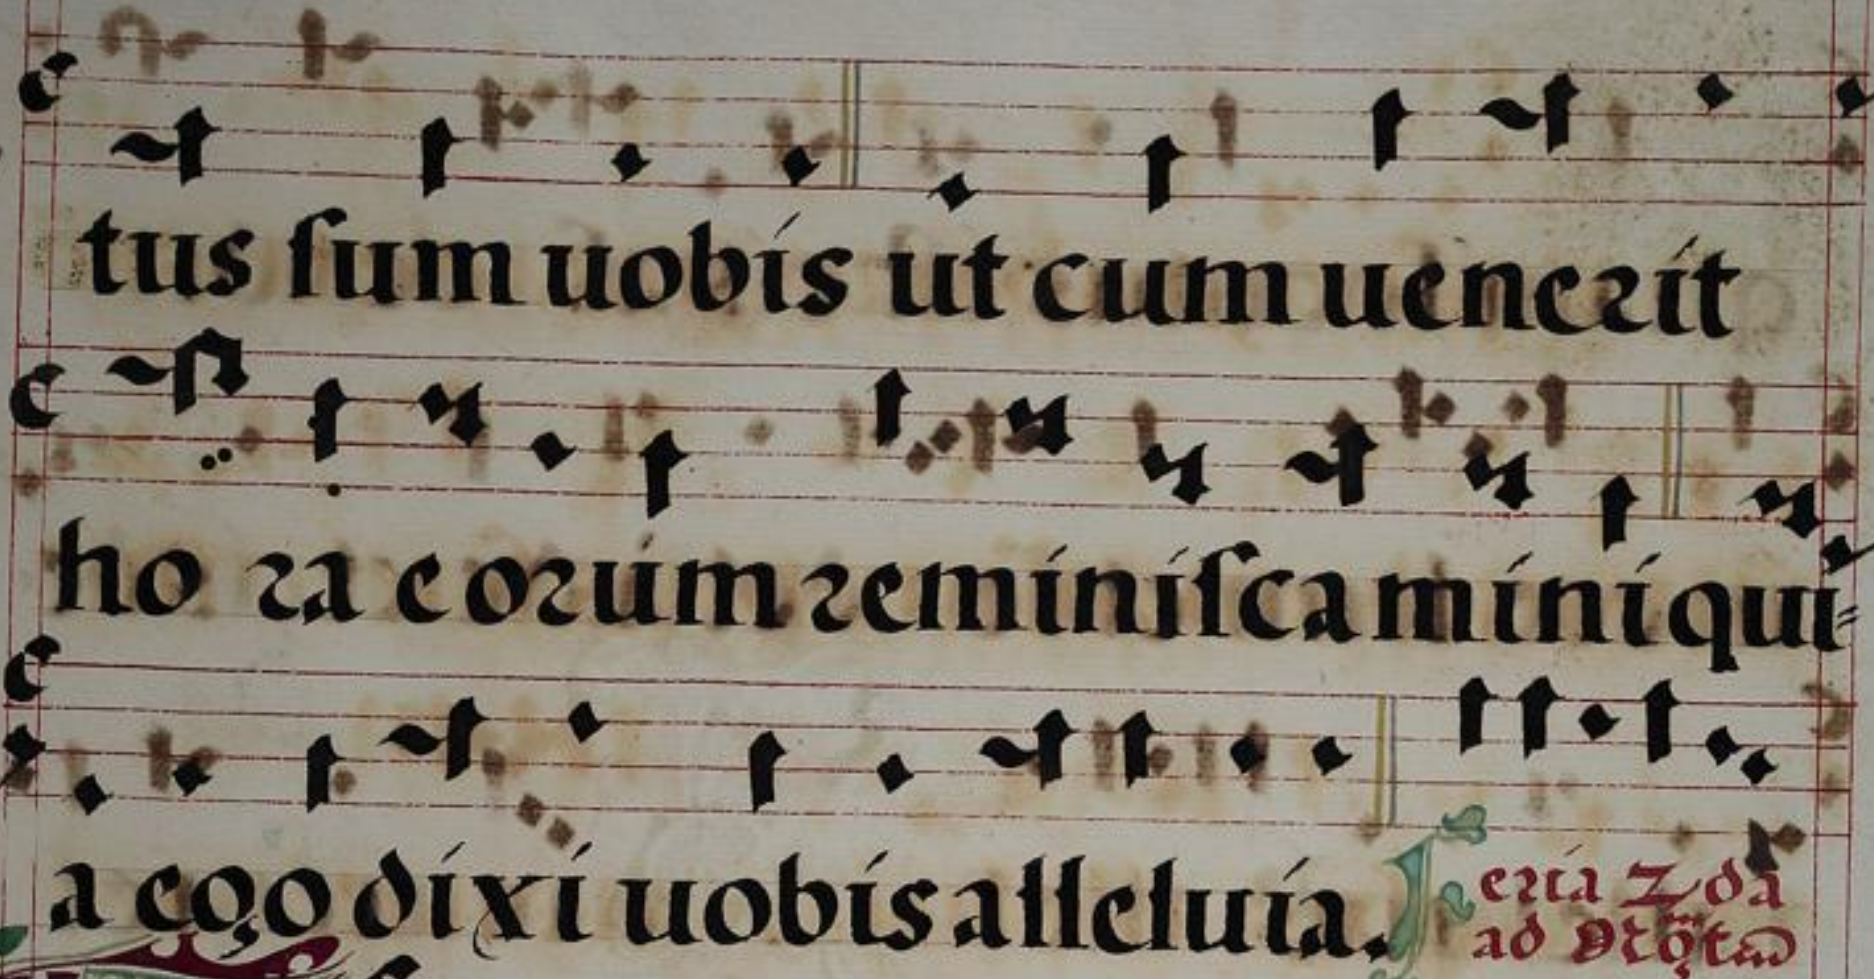 tus sum uobis ut cum uenerit
hora eorum reminiscamini qui-
a ego dixi uobis alleluia. Feria 2da
ad